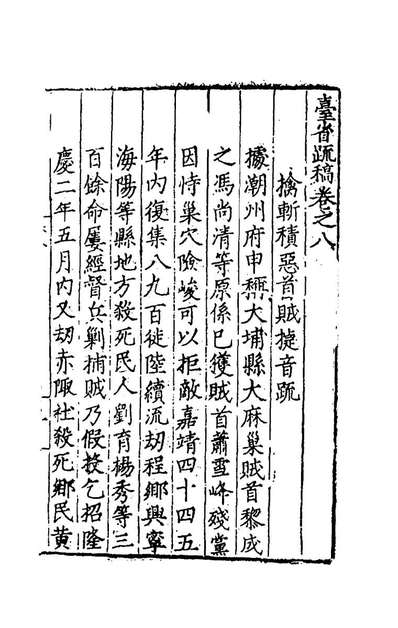 臺省疏稿卷之八
擒斬積惡首賊捷音疏
據潮州府申稱大埔縣大麻巢賊首黎成
之馮尚清等原係已獲賊首蕭雪峰殘黨
因恃巢穴險峻可以拒敵嘉靖四十四五
年內復集八九百徒陸續流刧程鄉興寧
海陽等縣地方殺死民人劉育楊秀等三
百餘命屢經督兵剿捕賊乃假投乞招隆
慶二年五月內又刧赤陬社殺死鄉民黄